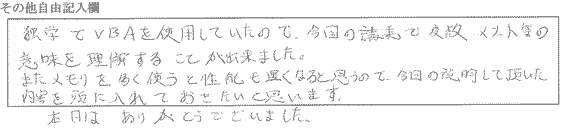 その他自由記入欄
独学でVBAを使用していたので、今回の講義で変数、メソッド等の
意味を理解することが出来ました。
またメモリを多く使うと性能も遅くなると思うので、今回の説明して頂いた
内容を頭に入れておきたいと思います。
本日はありがとうございました。